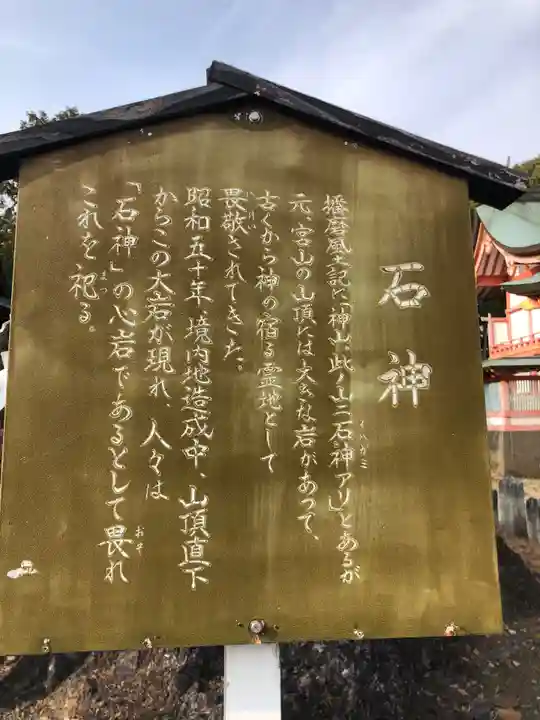 石神
播磨風土記に「神山此ノ山ニ石神アリ」とあるが
いハがミ
元、宮山の山頂には大きな岩があって、
古くから神の宿る霊地として
いけい
畏敬されてきた。
昭和五十年、境内地造成中、山頂直下
からこの大岩が現れ、人々は
「石神」の心岩であるとして畏れ
おそ
これを祀る。
まつ